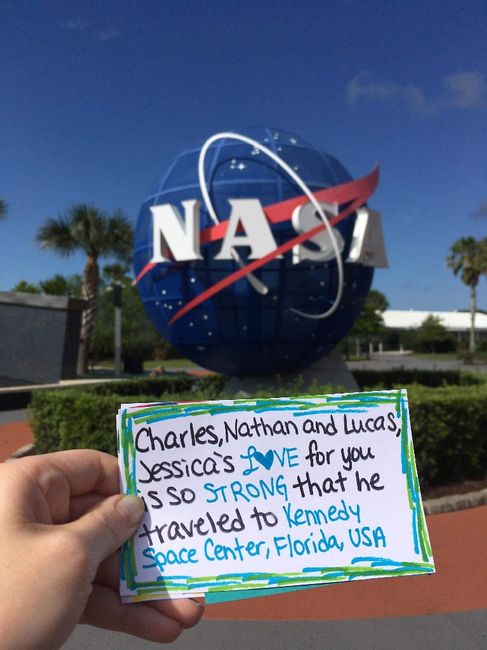 NASA
Charles, Nathan and Lucas,
Jessica's LOVE for you
is so STRONG that he
traveled to Kennedy
Space Center, Florida, USA